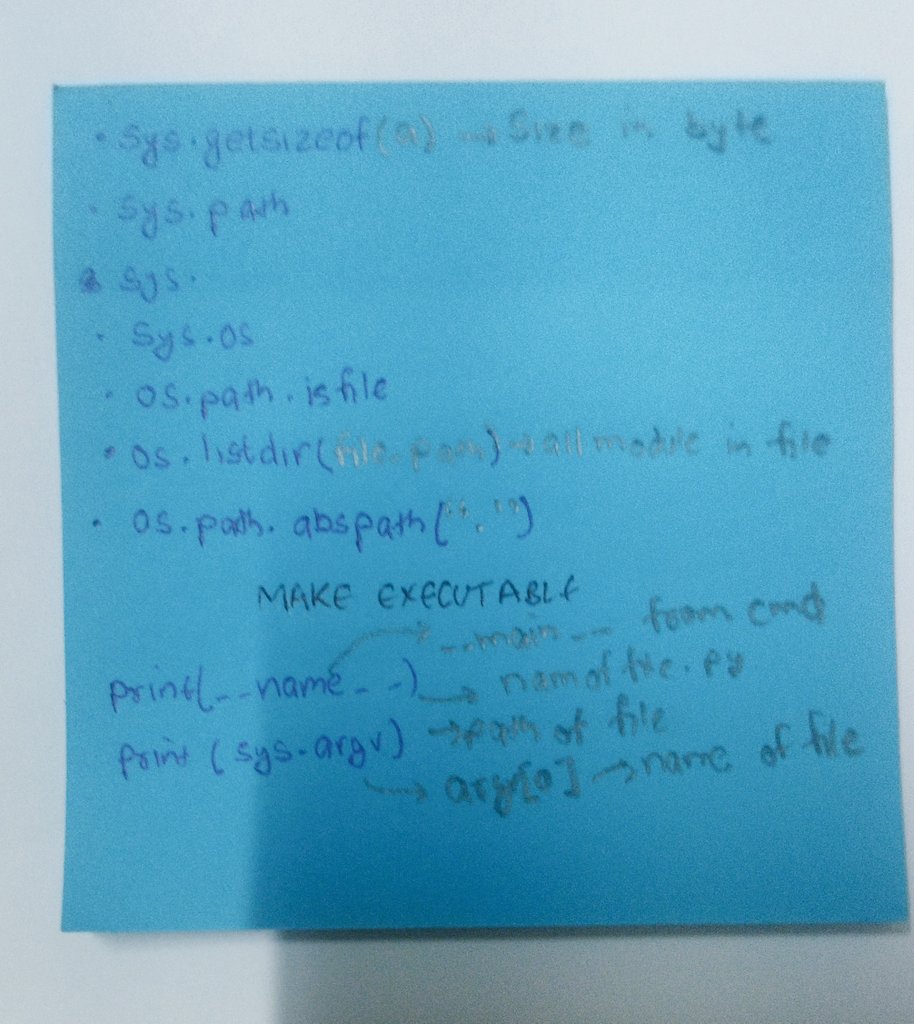 • sys.getsizeof(a) → Size in byte
• sys.path
• sys.
• sys.os
• os.path.isfile
• os.listdir(file.path) → all module in file
• os.path.abspath(".")
MAKE EXECUTABLE
__main__ from cmd
print(__name__) → nam of file.py
print (sys.argv) → path of file
→ argv[0] → name of file